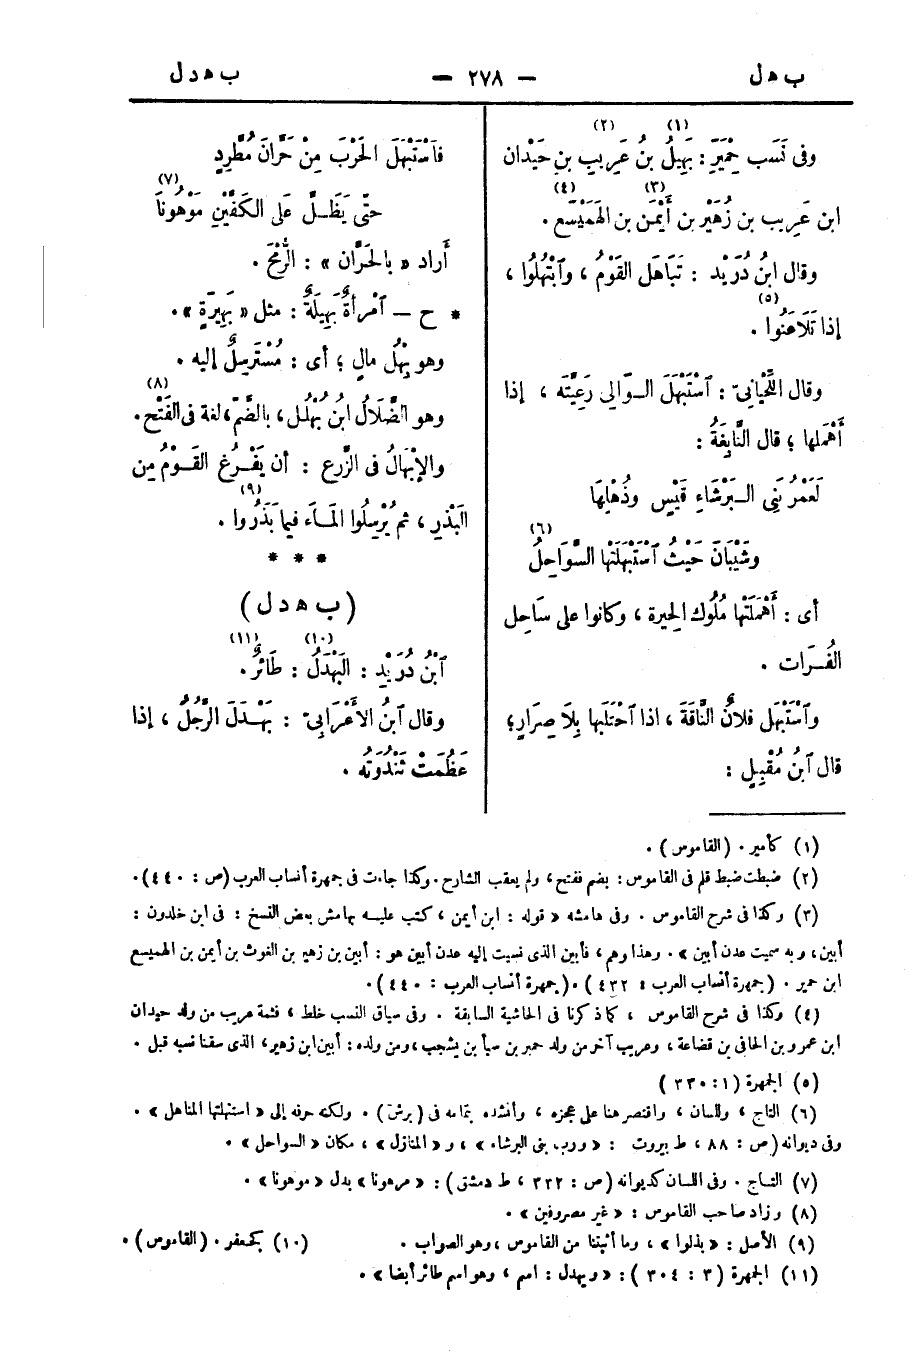 ب ھ ل — ٢٧٨ — ب ھ د ل
وفى نَسَب حِمْيَرَ : بَهِيلُ بنُ عَرِيبِ بنِ حَيْدان
(١) (٢)
ابن عَرِيب بن زُهَيْر بن أَيْمَن بن الهَمَيْسَع .
(٣) (٤)
وقال ابنُ دُرَيْد : تَبَاهَل القَوْمُ ، وٱبْتَهَلُوا ،
إذا تَلَاعَنُوا .
(٥)
وقال اللِّحْيانِىّ : ٱسْتَبْهَلَ الـوَّالِى رَعِيَّتَه ، إذا
أَهْمَلها ؛ قال النَّابِغَةُ :
لَعَمْرُ بَنِى الـبَرْشَاءِ قَيْسٍ وذُهْلِهَا
وشَيْبَانَ حَيْثُ ٱسْتَبْهَلَتْها السَّوَاحِلُ
(٦)
أى : أَهْمَلَتْها مُلُوك الحِيرة ، وكانوا على سَاحِل
الفُـرَات .
وٱسْتَبْهَل فلانٌ النَّاقَةَ ، اذا ٱحْتَلَبها بِلَا صِرَارٍ ؛
قال ٱبنُ مُقْبِلٍ :
فَٱسْتَبْهَلَ الحَرْبَ مِنْ حَرَّانَ مُطَّرِدٍ
حتّى يَظَـلَّ عَلَى الكَفَّيْنِ مَوْهُونَا
(٧)
أَراد « بالحَرَّان » : الرُّمْحَ .
* ح – ٱمْرأةٌ بَهِيلَةٌ : مثل « بَهِيرَةٍ » .
وهو بِهْلُ مالٍ ؛ أى : مُسْتَرسِلٌ إليه .
وهو الضَّلَالُ ابنُ بُهْلُل ، بالضّمّ ، لغة فى الفَتْح .
(٨)
والإبْهَالُ فى الزَّرع : أن يَفْـرُغ القَـوْمُ مِن
البَذْرِ ، ثم يُرْسِلُوا المَـاءَ فيما بَذَرُوا .
(٩)
* * *
( ب ھ د ل )
ٱبْنُ دُرَيْدٍ : البَهْدَلُ : طَائرٌ .
(١٠) (١١)
وقال ٱبنُ الأَعْرَابِىّ : بَهْـدَلَ الرَّجُلُ ، إذا
عَظُمَتْ ثَنْدُوَتُه .
(١) كأمير . (القاموس) .
(٢) ضبطت ضبط قلم فى القاموس : بضم ففتح ، ولم يعقب الشارح . وكذا جاءت فى جمهرة أنساب العرب (ص : ٤٤٠) .
(٣) وكذا فى شرح القاموس . وفى هامشه « قوله : ابن أيمن ، كتب عليـه بهامش بعض النسخ : فى ابن خلدون :
أبين ، وبه سميت عدن أبين » . وهذا وهم ، فأبين الذى نسبت إليه عدن أبين هو : أبين بن زهير بن الغوث بن أيمن بن الهميسع
ابن حمير . (جمهرة أنساب العرب : ٤٣٢) . (جمهرة أنساب العرب : ٤٤٠) .
(٤) وكذا فى شرح القاموس ، كما ذكرنا فى الحاشية السابقة . وفى سياق النسب خلط ، فثمة عريب من ولد حيدان
ابن عمرو بن الحافى بن قضاعة ، وعريب آخر من ولد حمير بن سبأ بن يشجب ، ومن ولده : أبين ابن زهير ، الذى سقنا نسبه قبل .
(٥) الجمهرة (١ : ٣٣٠)
(٦) التاج ، واللسان ، واقتصر هنا على عجزه ، وأنشده بتمامه فى (برش) . ولكنه حرفه إلى « استنهلتها المناهل » .
وفى ديوانه (ص : ٨٨ ، ط بيروت : « ورب بنى البرشاء » ، و « المنازل » ، مكان « السواحل » .
(٧) التـاج . وفى اللسان كديوانه (ص : ٣٢٢ ، ط دمشق) : « مرهونا » بدل « موهونا » .
(٨) وزاد صاحب القاموس : « غير مصروفين » .
(٩) الأصل : « بذلوا » ، وما أثبتنا من القاموس ، وهو الصواب . (١٠) كجعفر . (القاموس) .
(١١) الجمهرة (٣ : ٣٠٤) : « وبهدل : اسم ، وهو اسم طائر أيضا » .